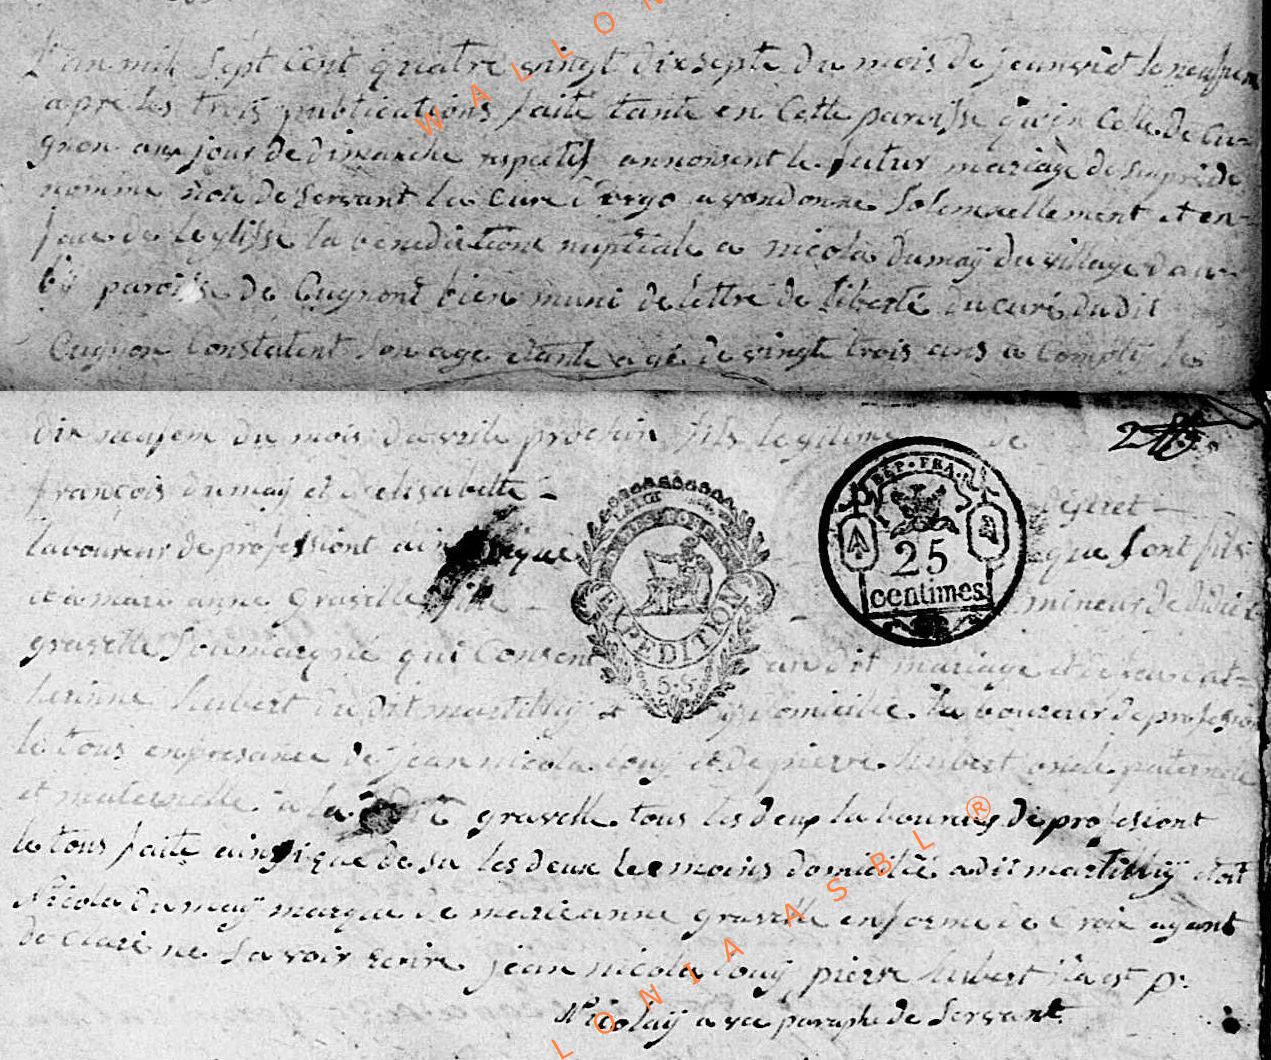 L'an mil sept cent quatre vingt dixsepte du mois de jeanviet le neufiem
apre les trois publications faite tante en Cette paroisse qu'en Celle de Cu=
gnon aux jour de dimanche respectif annonsent le futur mariage de
nomme de servant la cure d'orgo avondonne Solemnellement et en=
face de leglisse la benedictions nuptiale a nicola dumaÿ du village dau=
bÿ paroisse de Cugnont bien muni de lettre de liberté du curé dudit
Cugnon Constatent Son age etante agé de vingt trois ans a Compté le
dix neufiem du mois davrile prochin fils legitime de
françois dumaÿ et delisabette - degeret -
laboureur de professiont que sont fils
et a marie anne gravelle fille - mineur de didie
gravelle qui Consent au dit mariage et de la cat=
herinne hubert du dit martillÿ domicilié laboureur de professio
le tous en presance de jean nicola louÿ et de pierre hubert oncle paternele
et maternelle a la gravelle tous les deux laboureur de professiont
le tous faite ainsi que desu les deux temoins domicilié adit martillÿ etoit
Nicola dumaÿ marque de marieanne gravelle enforme de Croix ayant
declaré ne savoir ecrire jean nicola louÿ pierre hubert ita est p.
Nicolaÿ avec paraphe de Servant
RÉP. FRA.
25
centimes
EXPEDITION
S.S.
WALLONIA ASBL ®